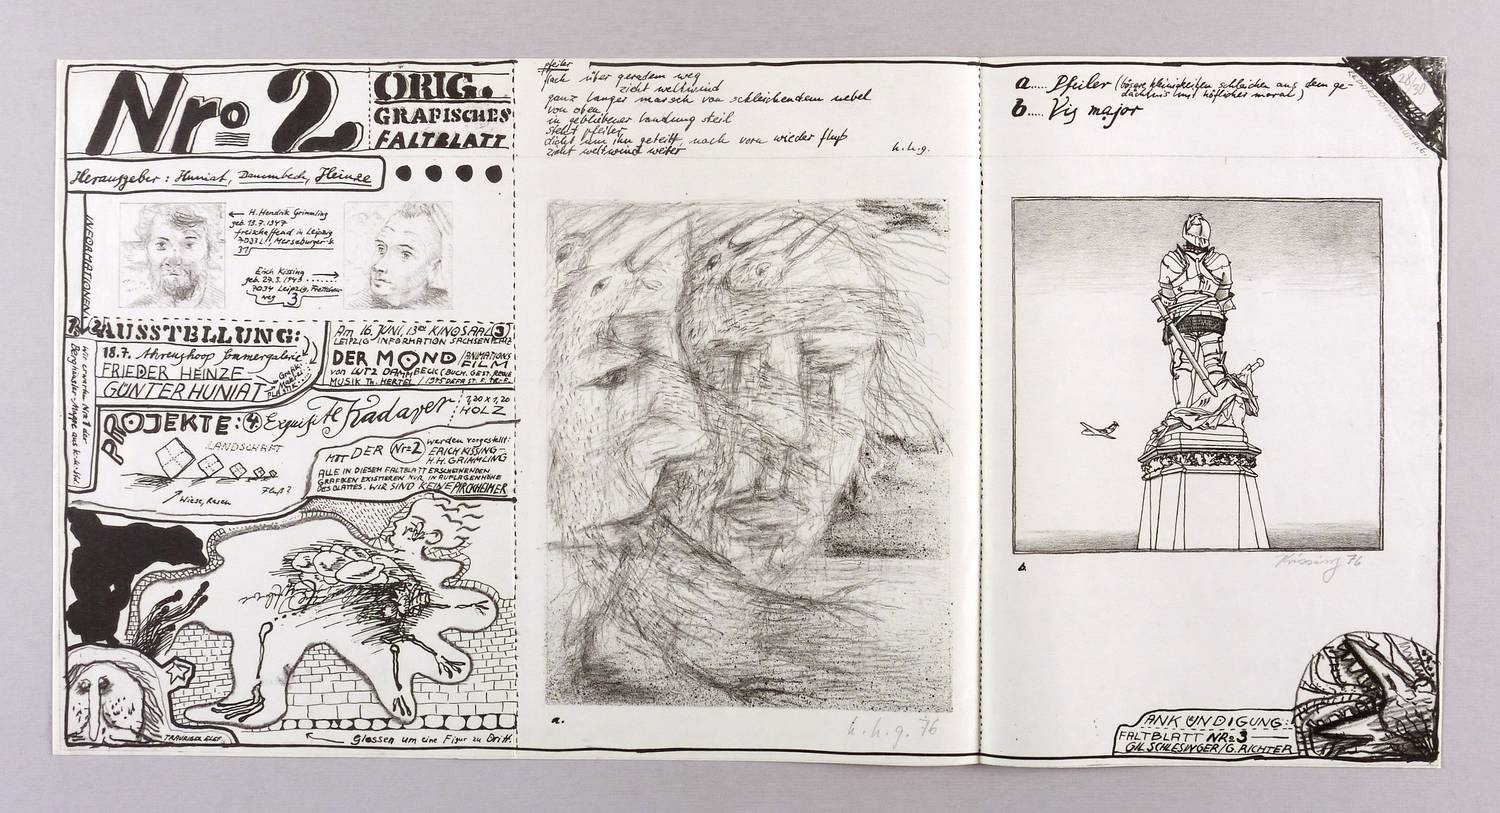 Nro 2
ORIG.
GRAFISCHES
FALTBLATT
Herausgeber: Huniat, Dammbeck, Heinze
INFORMATIONEN
H. Hendrik Grimmling
geb. 13.7.1947
freischaffend in Leipzig
7033 L., Merseburger
31
Erich Kissing
geb. 27.5.1943
7034 Leipzig,
weg 3
AUSSTELLUNG:
18.7. Ahrenshoop Sommergalerie
FRIEDER HEINZE
GÜNTER HUNIAT
Grafik
Malerei
PLASTIK
Am 16. JUNI, 13°° KINOSAAL 3
LEIPZIG-INFORMATION SACHSENPLATZ
DER MOND ANIMATIONS
FILM
von LUTZ DAMMBECK (BUCH, GEST. REGIE
MUSIK Th. HERTEL / 1975 DEFA ST. F. TR.-F.
PROJEKTE: 4. Exquisite Kadaver
2,20 x 1,20
HOLZ
LANDSCHAFT
Fluß?
Wiese, Rasen
MIT DER Nro 2 werden vorgestellt:
ERICH KISSING -
H.H. GRIMMLING
ALLE IN DIESEM FALTBLATT ERSCHEINENDEN
GRAFIKEN EXISTIEREN NUR IN AUFLAGENHÖHE
DES BLATTES. WIR SIND KEINE PIRCKHEIMER
TRAURIGER ELEF.
Glossen um eine Figur zu Dritt.
pfeiler
flach über geradem weg
zieht weltwind
ganz langer marsch von schleichendem nebel
von oben
in gebliebener landung steil
steht pfeiler
dicht um ihn geteilt, nach vorn wieder fluß
zieht weltwind weiter
h.h.g.
a.
h.h.g. 76
a..... Pfeiler (böse kleinigkeiten schleichen aus dem ge-
dächtnis mit höflicher moral)
b..... Vis major
28/30
b.
Kissing 76
ANKÜNDIGUNG:
FALTBLATT NRo 3
GIL SCHLESINGER/G. RICHTER